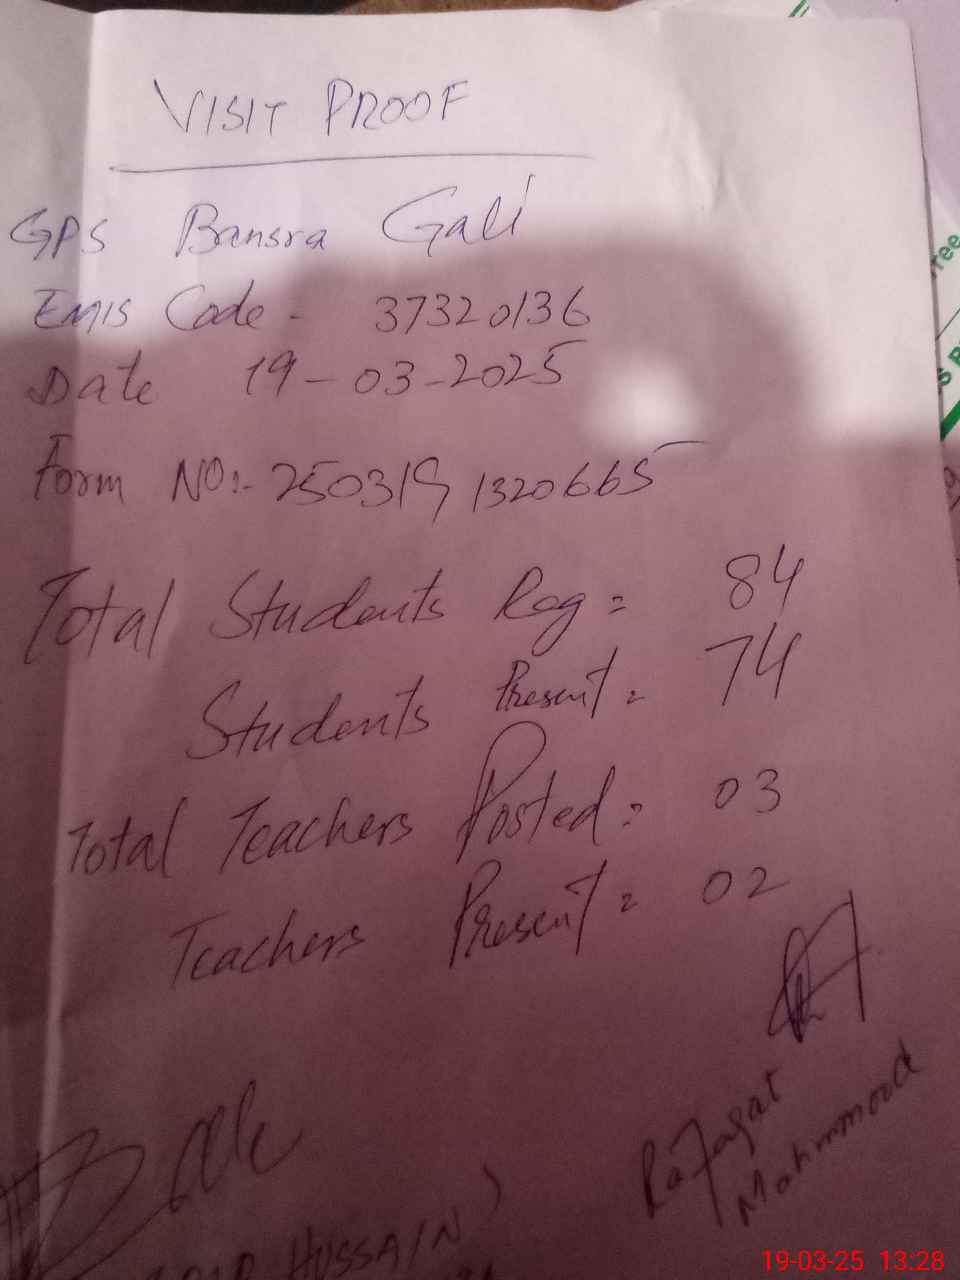 VISIT PROOF
GPS Bansra Gali
EMIS Code - 37320136
Date 19-03-2025
Form NO:- 250319 1320665
Total Students Reg = 84
Students Present = 74
Total Teachers Posted = 03
Teachers Present = 02
Rafaqat
Mahmmood
HUSSAIN)
19-03-25 13:28
ree